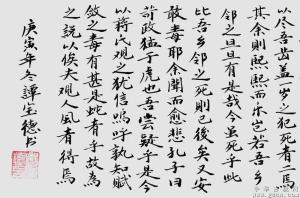 以吾齿盖一岁之犯死者二焉
其余則熙熙而乐豈若吾乡
邻之旦旦有是哉今雖死乎此
比吾乡邻之死則已後矣又安
敢毒耶余聞而愈悲孔子曰
苛政猛于虎也吾嘗疑乎是今
以蒋氏观之犹信嗚呼孰知賦
敛之毒有甚是蛇者乎故為
之說以俟夫观人風者得焉
庚寅年冬譚宝德书